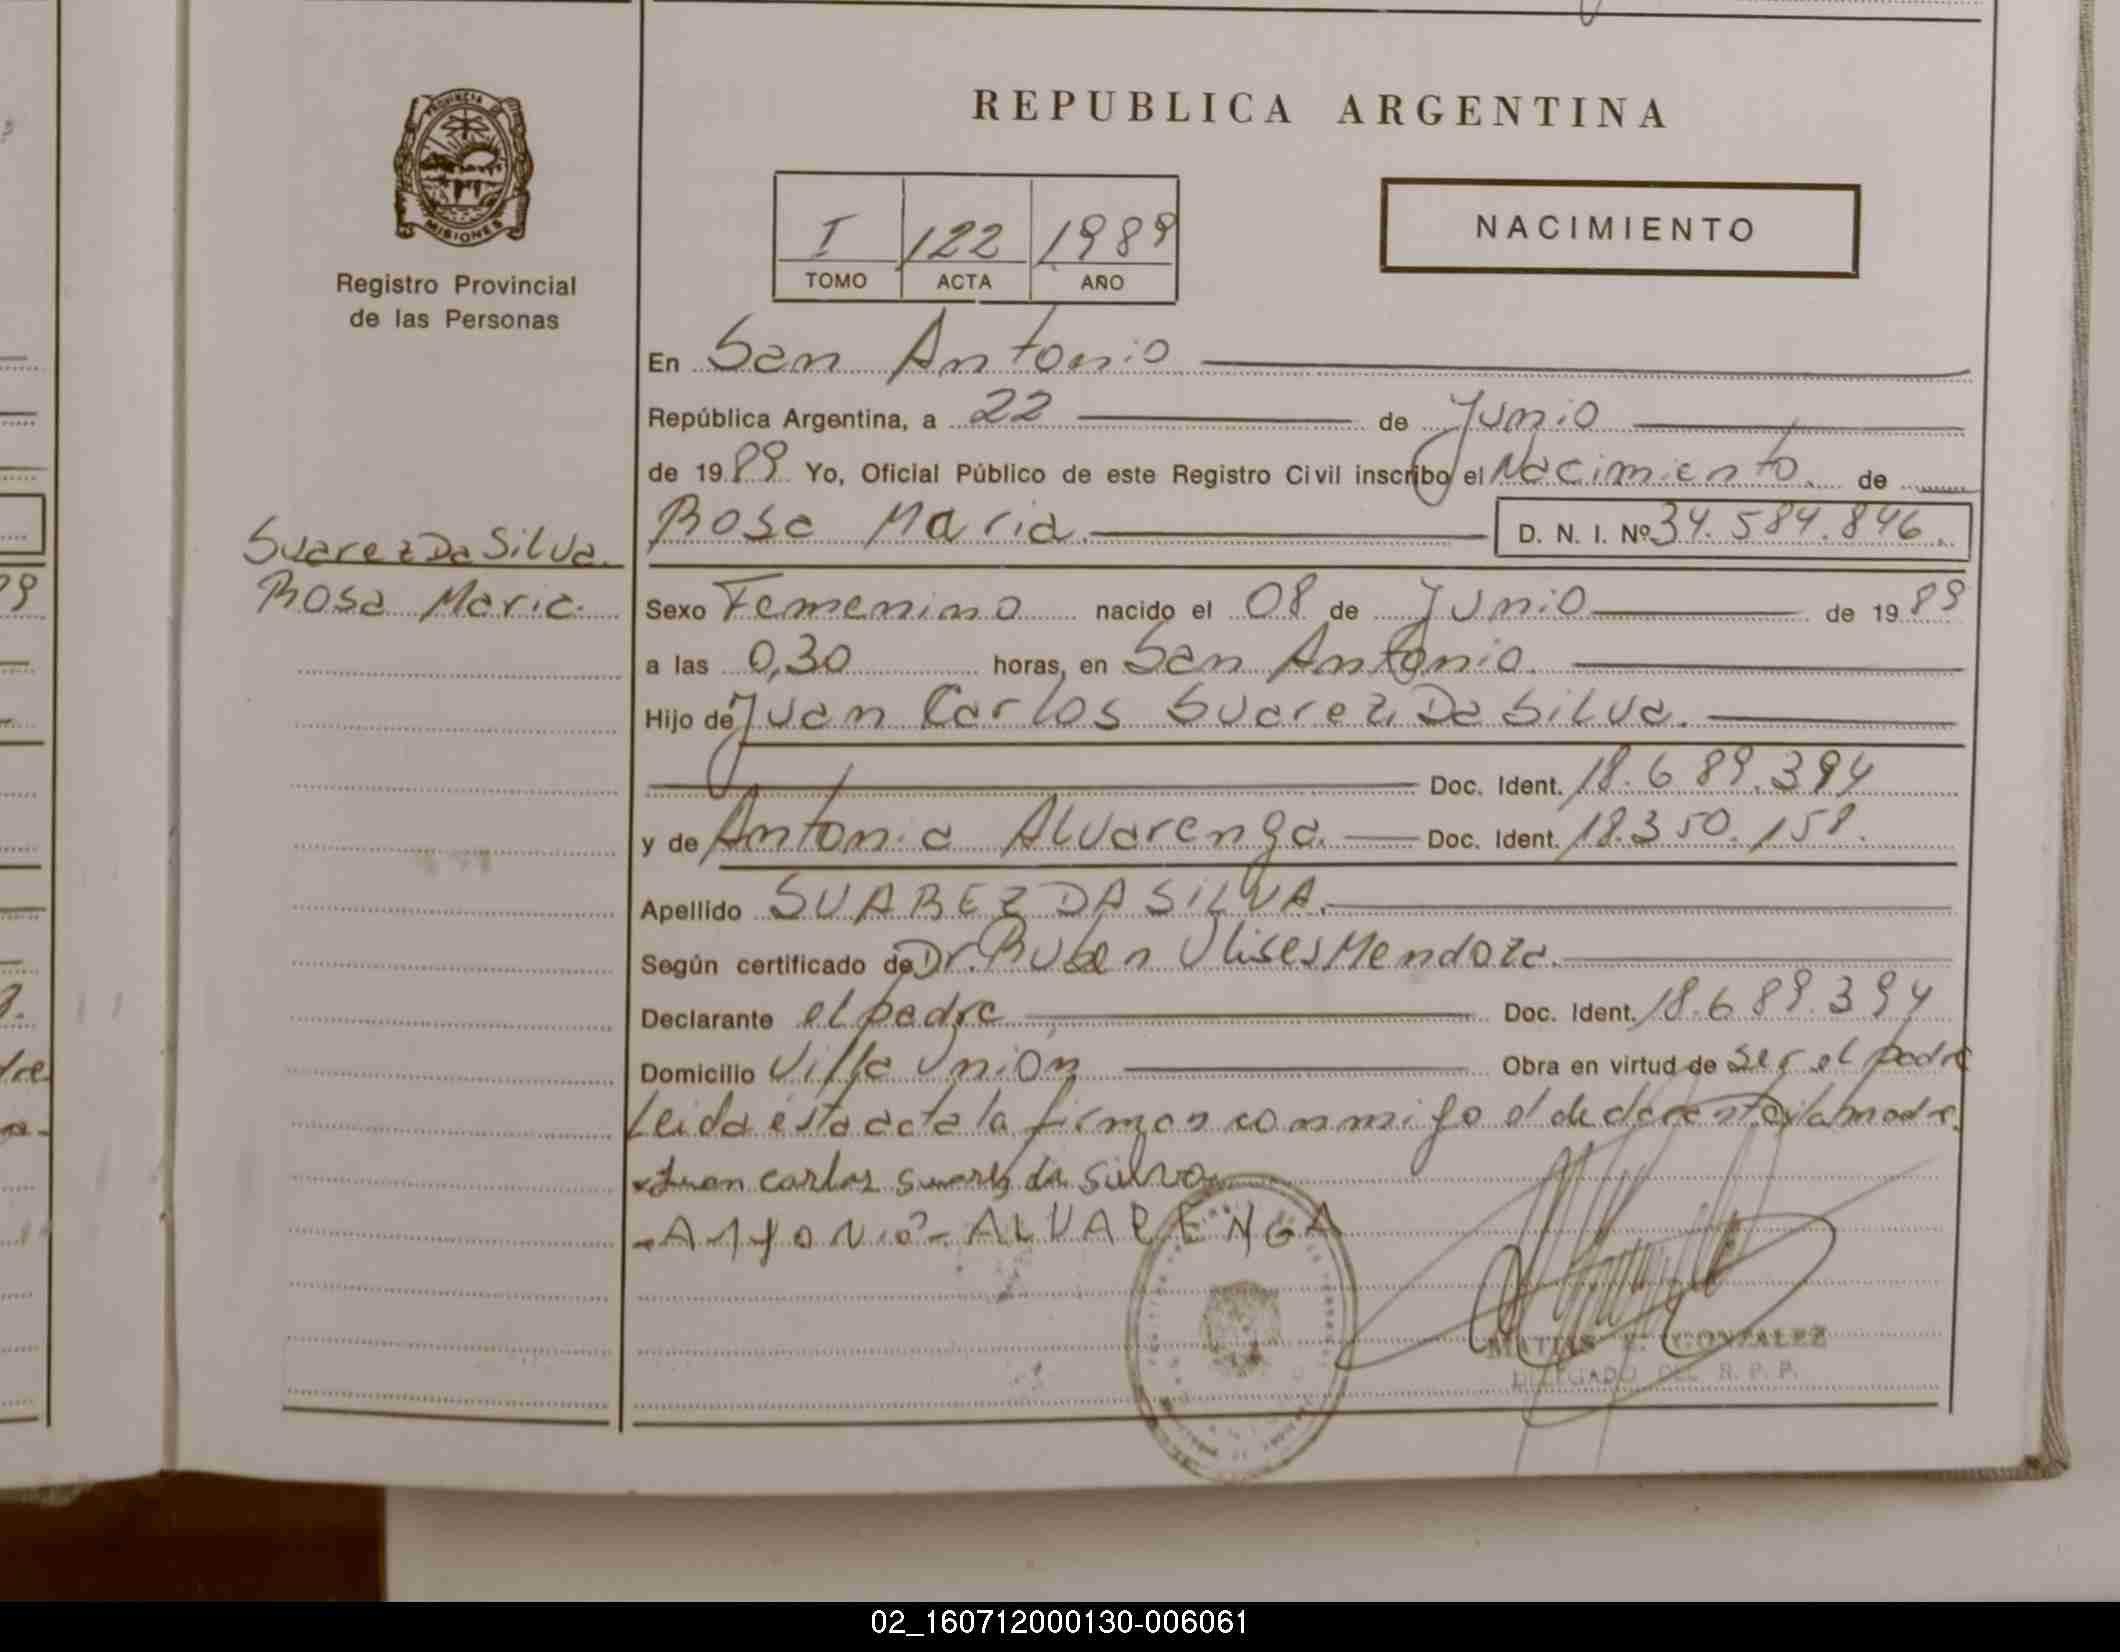 REPUBLICA ARGENTINA
PROVINCIA DE
MISIONES
Registro Provincial
de las Personas
I 122 1989
TOMO ACTA AÑO
NACIMIENTO
En San Antonio
República Argentina, a 22 de Junio
de 1989 Yo, Oficial Público de este Registro Civil inscribo el Nacimiento de
Rosa Maria D. N. I. Nº 34.584.846.
Suarez Da Silva.
Rosa Maria.
Sexo Femenino nacido el 08 de Junio de 1989
a las 0,30 horas, en San Antonio.
Hijo de Juan Carlos Suarez Da Silva.
Doc. Ident. 18.689.394
y de Antonia Alvarenga. Doc. Ident. 18.350.158.
Apellido SUAREZ DA SILVA.
Según certificado de Dr. Ruben Ulises Mendoza.
Declarante el padre Doc. Ident. 18.689.394
Domicilio Villa Unión Obra en virtud de ser el padre
Leida esta acta la firman conmigo el declarante y la madre.
Juan carlos suarez da silva
-ANTONIA- ALVARENGA
MATIAS GONZALEZ
DELEGADO DEL R. P. P.
02_160712000130-006061